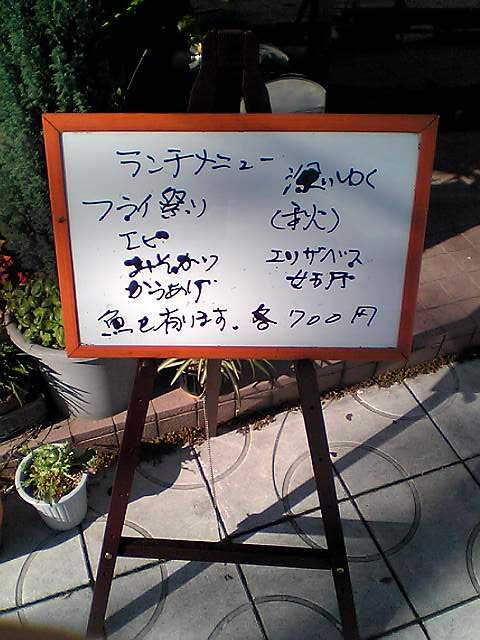 ランチメニュー
フライ祭り
エビ
みそかつ
からあげ
魚も有ります。各700円
しゆく
(秋)
エリザベス